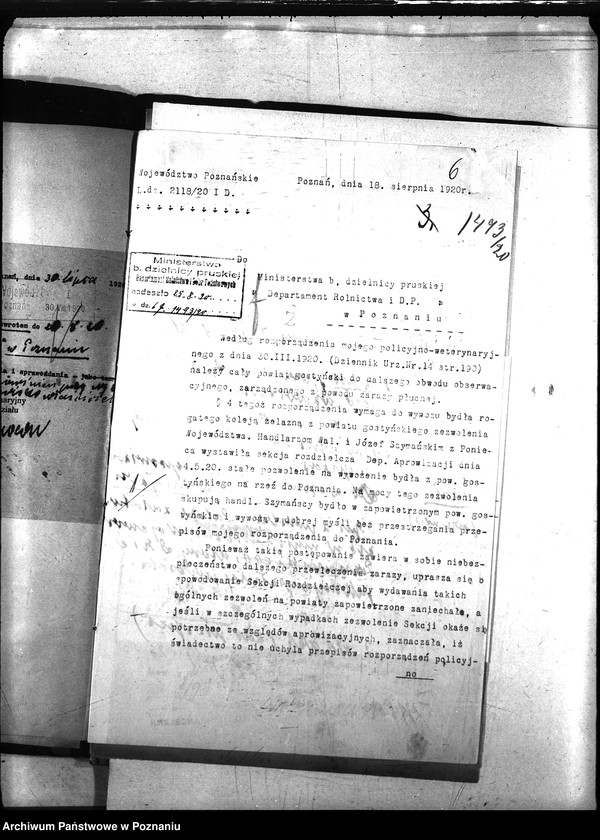 6
Województwo Poznańskie
L.dz. 2118/20 I D.
Poznań, dnia 18. sierpnia 1920r.
1493/20
Do
Ministerstwa b, dzielnicy pruskiej
Departament Rolnictwa i D.P.
w Poznaniu
Ministerstwo
b. dzielnicy pruskiej
nadeszło 25.8.20.
1493/20
Według rozporządzenia mojego policyjno-weterynaryj-
nego z dnia 30.III.1920. (Dziennik Urz.Nr.14 str.190)
należy cały powiat gostyński do dalszego obwodu obserwa-
cyjnego, zarządzonego z powodu zarazy płucnej.
§ 4 tegoż rozporządzenia wymaga do wywozu bydła ro-
gatego koleją żelazną z powiatu gostyńskiego zezwolenia
Województwa. Handlarzom Wal. i Józef Szymańskim z Ponie-
ca wystawiła sekcja rozdzielcza Dep. Aprowizacji dnia
4.5.20. stałe pozwolenie na wywożenie bydła z pow. gos-
tyńskiego na rzeź do Poznania. Na mocy tego zezwolenia
skupują handl. Szymańscy bydło w zapowietrzonym pow. gos-
tyńskim i wywożą w dobrej myśli bez przestrzegania prze-
pisów mojego rozporządzenia do Poznania.
Ponieważ takie postępowanie zawiera w sobie niebez-
pieczeństwo dalszego przewleczenia zarazy, uprasza się o
spowodowanie Sekcji Rozdzielczej aby wydawania takich
ogólnych zezwoleń na powiaty zapowietrzone zaniechała, a
jeśli w szczególnych wypadkach zezwolenie Sekcji okaże się
potrzebne ze względów aprowizacyjnych, zaznaczała, iż
świadectwo to nie uchyla przepisów rozporządzeń policyj-
no
dnia 30 lipca 1920
w Poznaniu
Archiwum Państwowe w Poznaniu